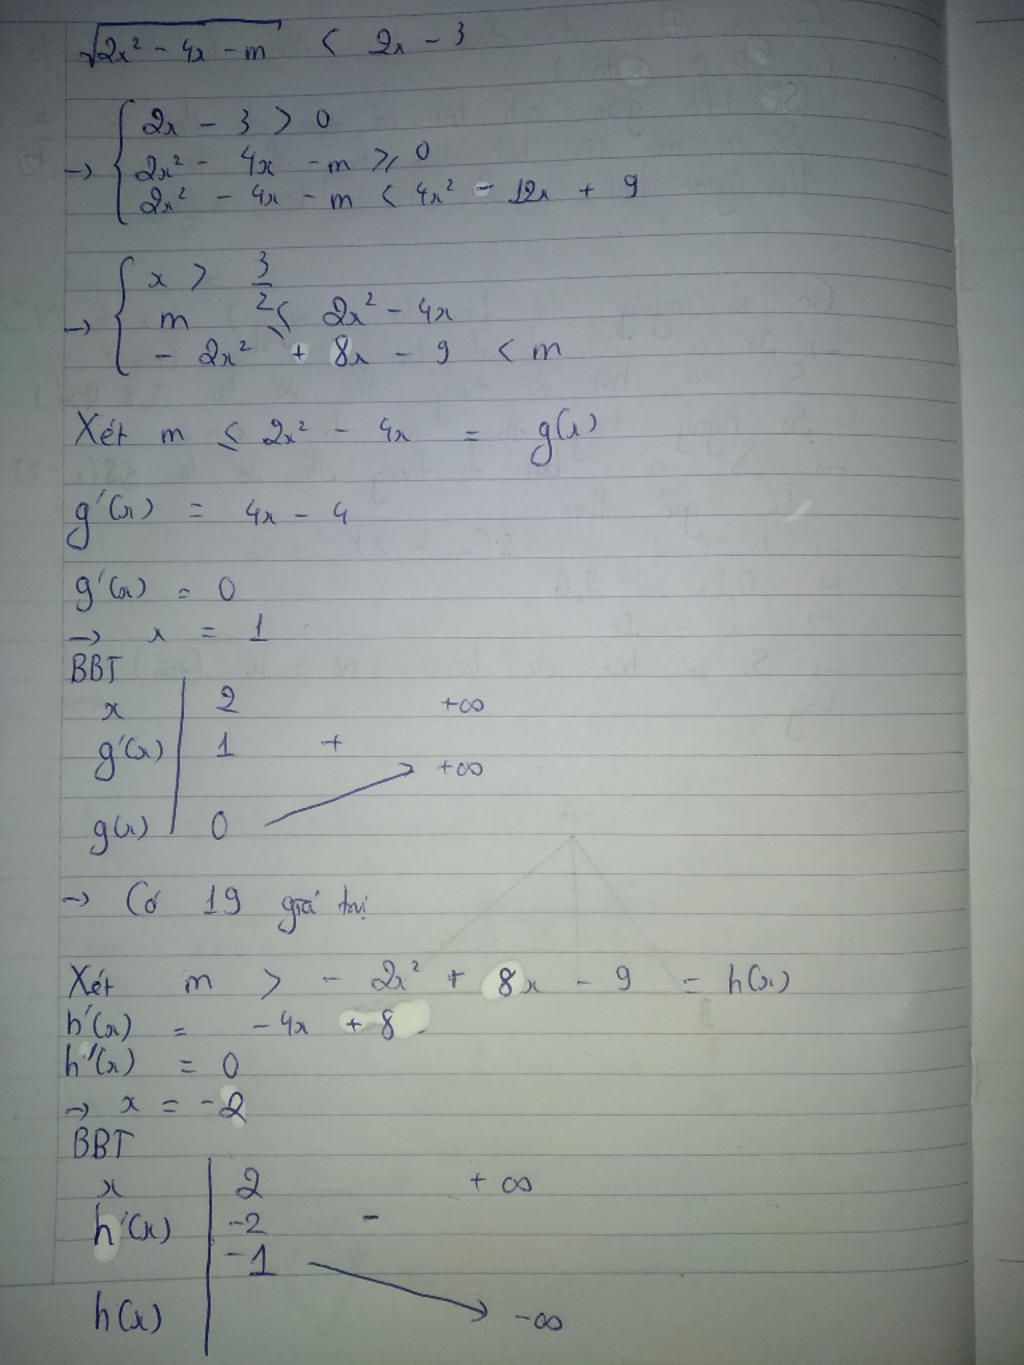 √(2x² - 4x - m) < 2x - 3
→ { 2x - 3 > 0
2x² - 4x - m ≥ 0
2x² - 4x - m < 4x² - 12x + 9
→ { x > 3/2
m ≤ 2x² - 4x
- 2x² + 8x - 9 < m
Xét m ≤ 2x² - 4x = g(x)
g'(x) = 4x - 4
g'(x) = 0
→ x = 1
BBT
x | 2 +∞
g'(x) | 1 +
+∞
g(x) | 0
→ Có 19 giá trị
Xét m > - 2x² + 8x - 9 = h(x)
h'(x) = - 4x + 8
h'(x) = 0
→ x = -2
BBT
x | 2 + ∞
h'(x) | -2 -
-1
h(x) | -∞